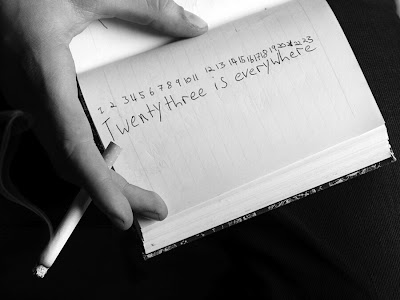 1 2 3 4 5 6 7 8 9 10 11 12 13 14 15 16 17 18 19 20 21 22 23
Twentythree is everywhere